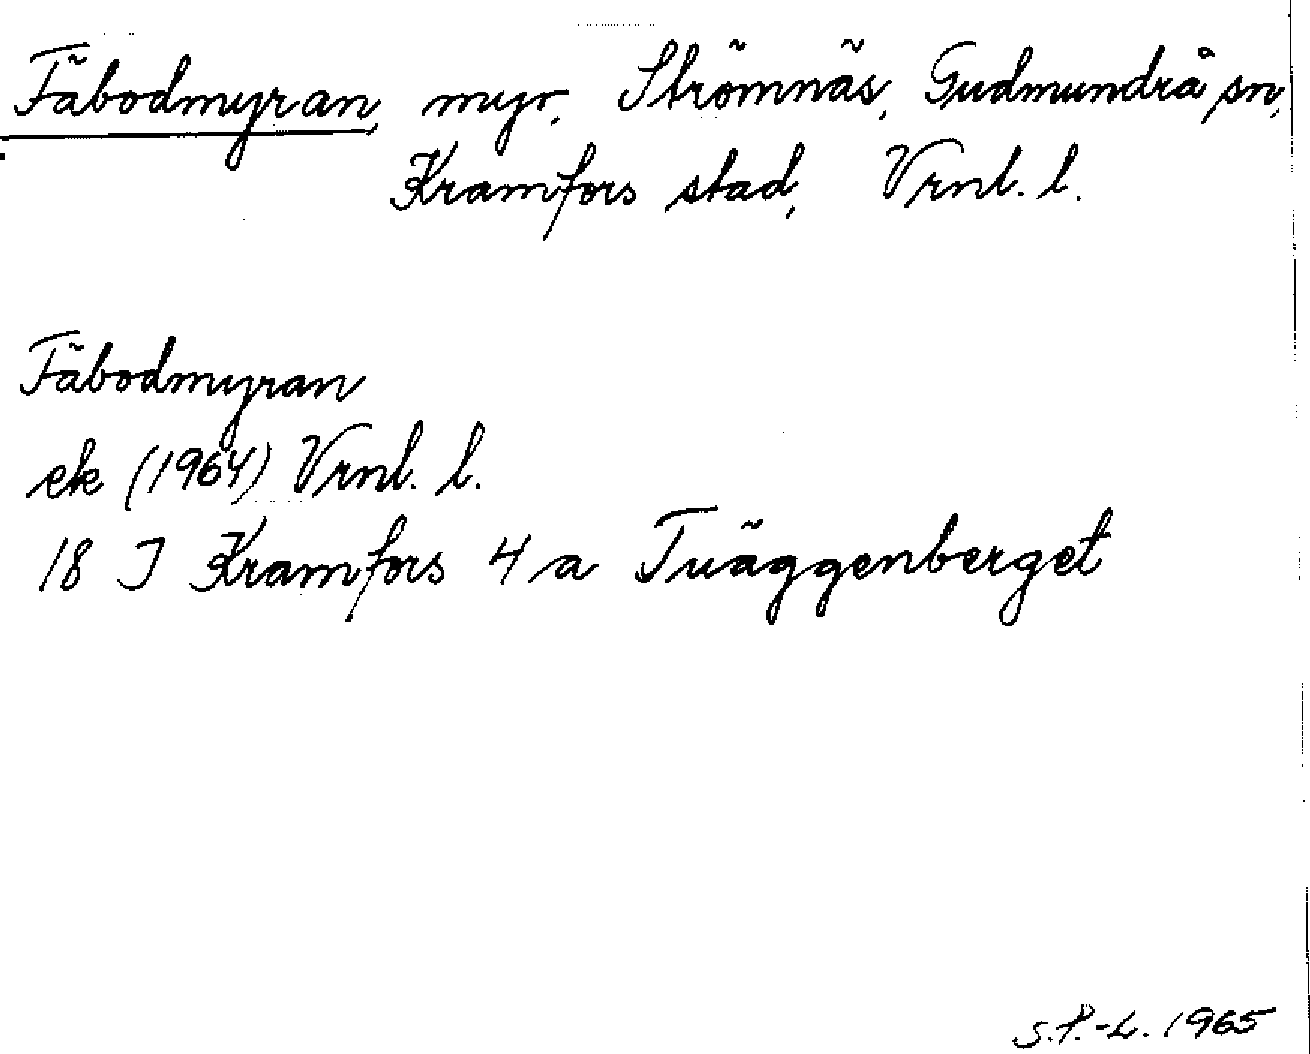 Fäbodmyran, myr, Strömnäs, Gudmundrå sn,
Kramfors stad, Vrnl. l.
Fäbodmyran
ek (1964) Vrnl. l.
18 I Kramfors 4 a Tväggenberget
S.P.-L. 1965